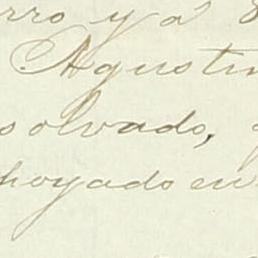 rro y a
Agustin
solvado,
poyado en